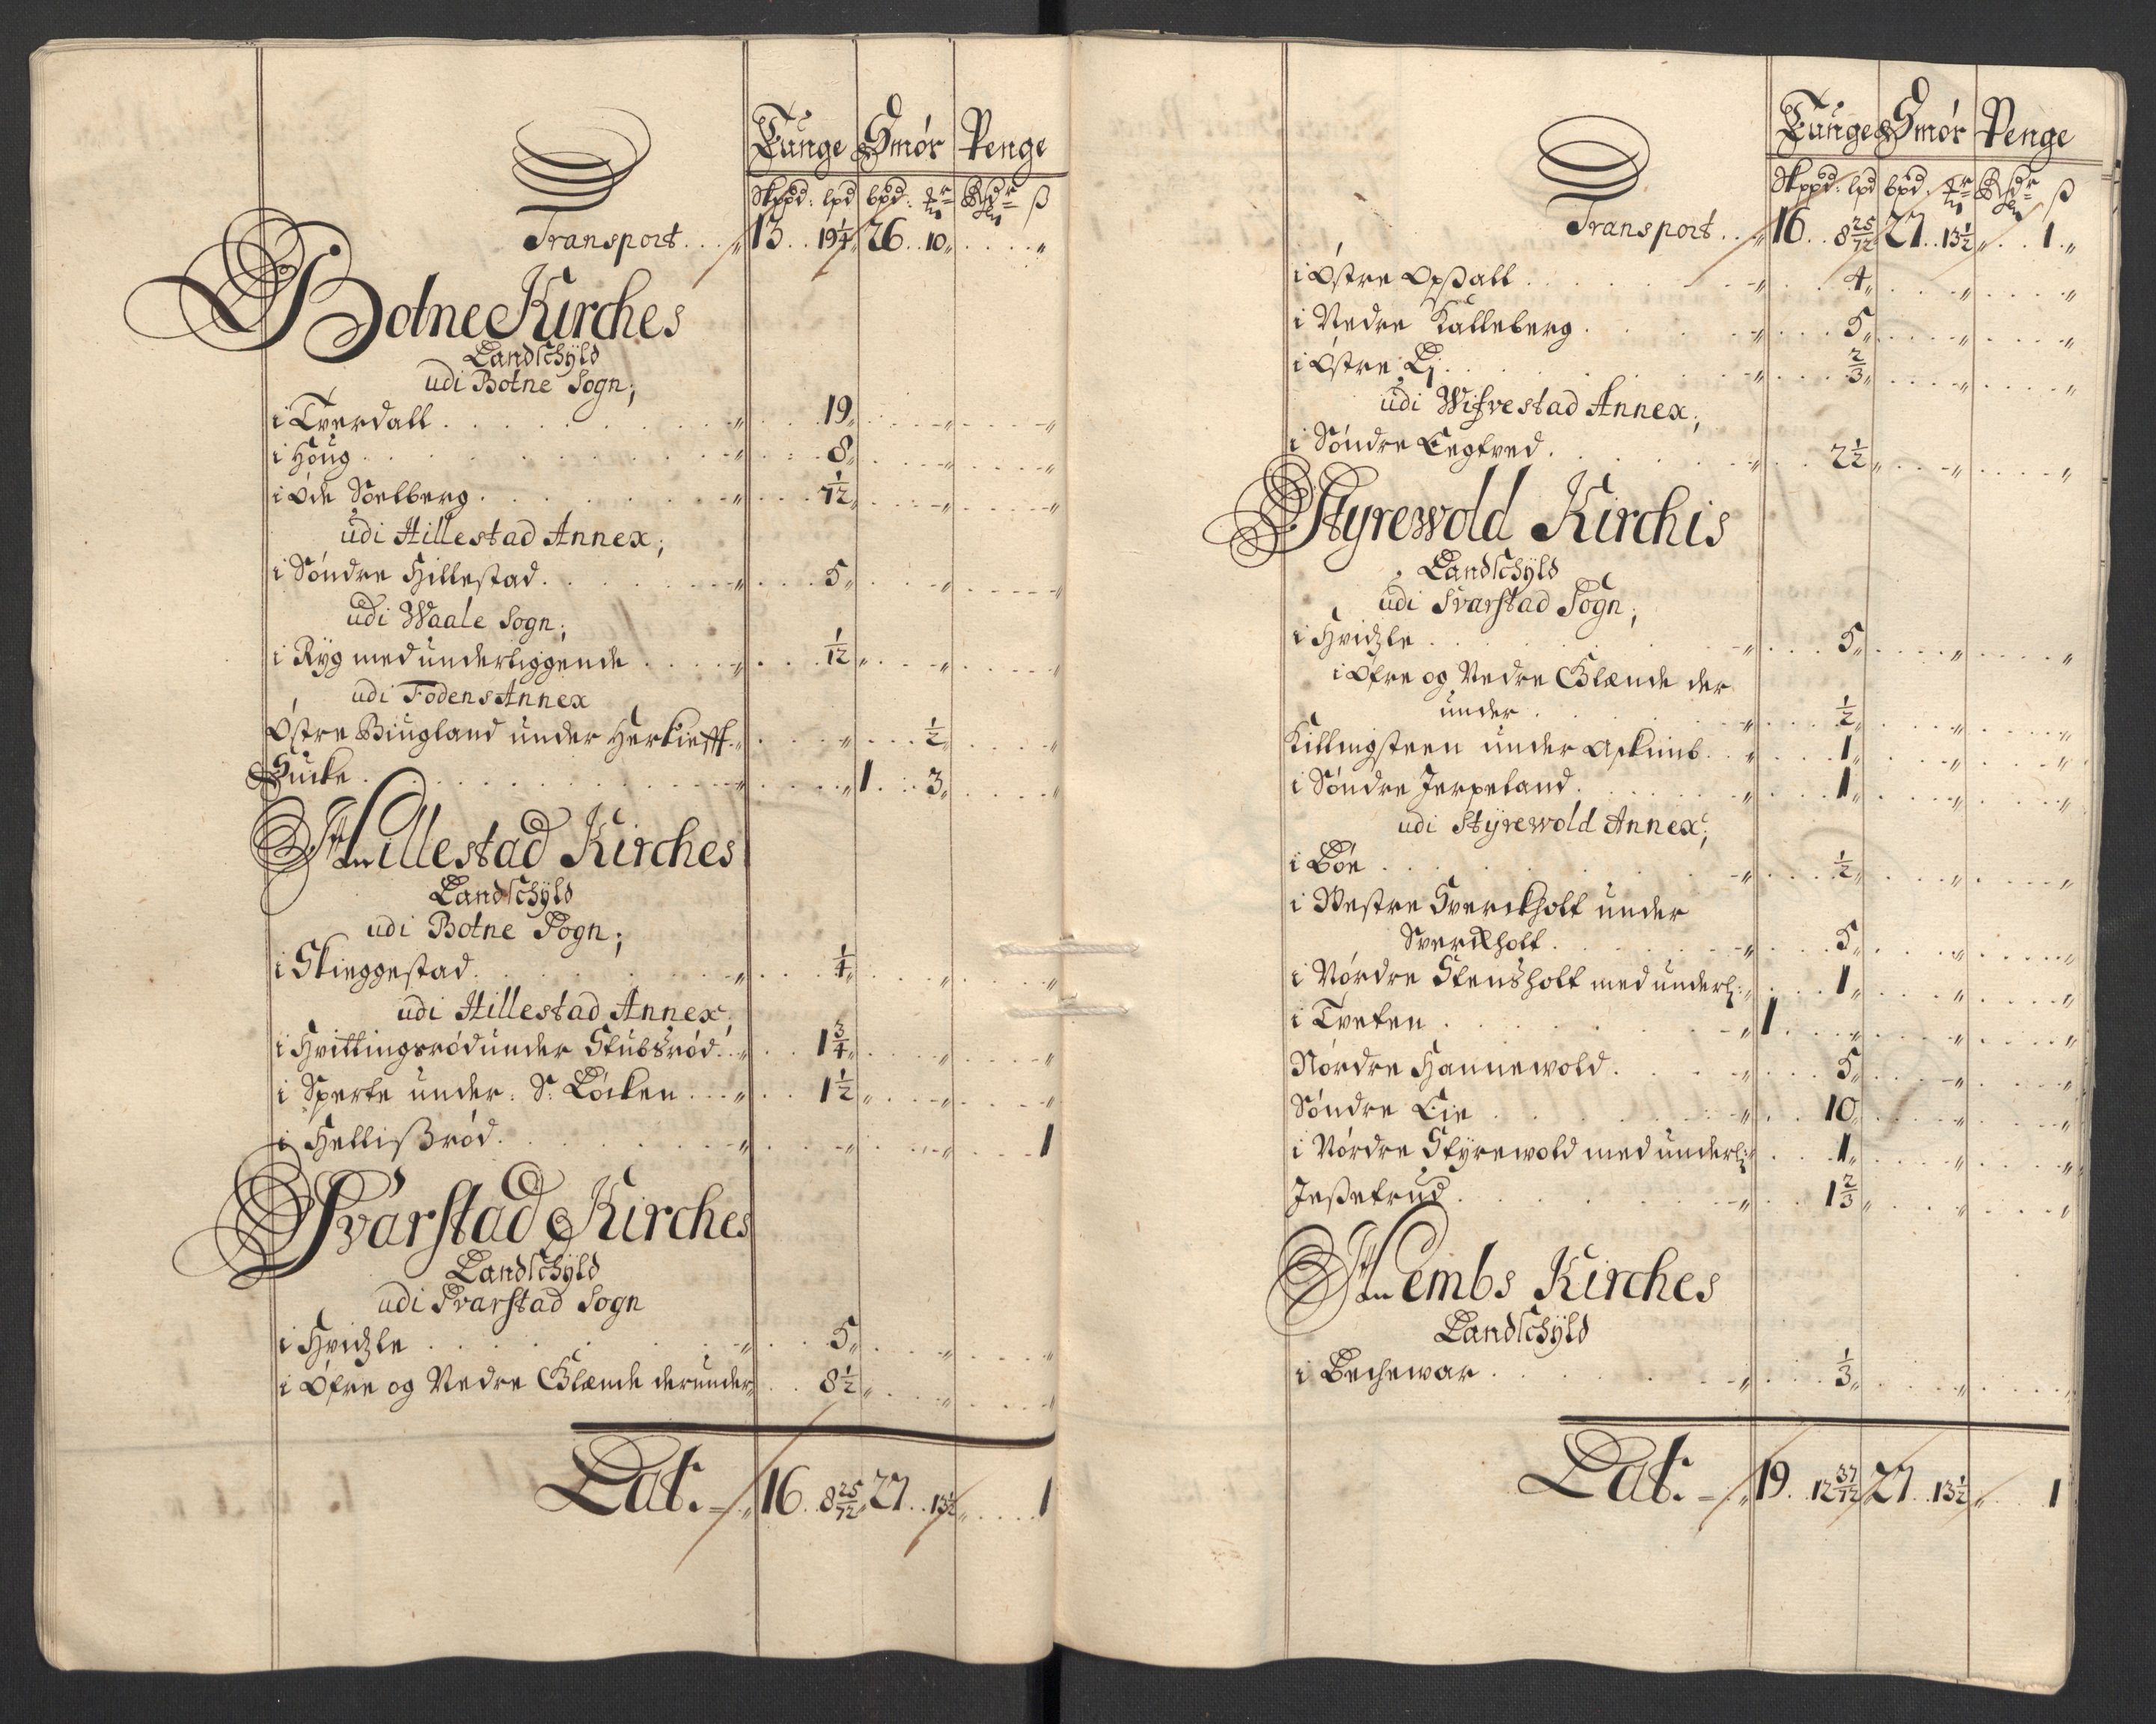 Tunge Smör Penge
Skppd: lpd bpd: Rdr ß
Transport . . 13 . . 19 1/4 26 . . 10 „ . . . „
Botne Kirches
Landschÿld
udi Botne Sogn;
i Tverdall . . . 19 „
i Houg . . . 8 „
i Øde Soelberg . . . 1/12 „
udi Hillestad Annex;
i Söndre Hillestad . . . 5 „
udi Waale Sogn;
i Ryg med underliggende . . . 1/12 „
udi Fodens Annex
Østre Biugland under Herkieff . . . 1/2 „
Sucke . . . 1 . . 3 „
Hillestad Kirches
Landschÿld
udi Botne Sogn;
i Skieggestad . . . 1/4 „
udi Hillestad Annex;
i Hvittingsröd under Stubsröd . . . 1 3/4 „
i Sperke under: S: Löcken . . . 1 1/2 „
i Hellißröd . . . 1
Svarstad Kirches
Landschÿld
udi Svarstad Sogn
i Hvidzle . . . 5 „
i Øfre og Nedre Glænde derunder . . 8 1/2 „
Lat. 16 . . 8 25/72 27 . . 13 1/2 „ . . . 1
Tunge Smör Penge
Skppd: lpd bpd: Rdr ß
Transport . . 16 . . 8 25/72 27 . . 13 1/2 „ . . 1 . „
i Østre Opßall . . . 4 „
i Nedre Kalleberg . . . 5 „
i Østre Ej . . . 2/3 „
udi Wifvestad Annex;
i Söndre Tegtved . . . 2 1/2 „
Styrewold Kirchis
Landschÿld
udi Svarstad Sogn;
i Hvidzle . . . 5 „
i Øfre og Nedre Glænde der
under . . . 1/2 „
Killingsteen under Askimb . . . 1 „
i Söndre Jerpeland . . . 1 „
udi Styrewold Annex;
i Böe . . . 1/2 „
i Westre Sverckholt under
Sverckholt . . . 5 „
i Nördre Stensholt med underl: . . . 1 „
i Tveten . . . 1 . . . „
Nördre Hannewold . . . 5 „
Söndre Eie . . . 10 „
i Nördre Styrewold med underl: . . . 1 „
Jeßetrud . . . 1 2/3 „
Hembs Kirches
Landschÿld
i Bechewar . . . 1/3 „
Lat. 19 . . 12 37/72 27 . . 13 1/2 „ . . . 1